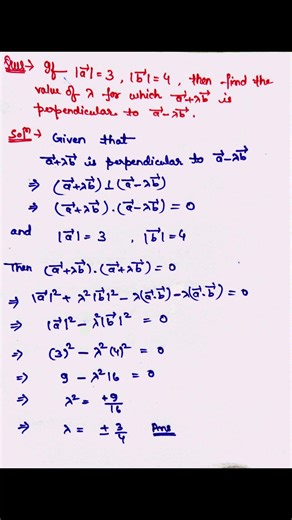 Ques → If |a⃗| = 3 , |b⃗| = 4 , then find the
value of λ for which a⃗+λb⃗ is
perpendicular to a⃗-λb⃗.
Solⁿ → Given that
a⃗+λb⃗ is perpendicular to a⃗-λb⃗
⇒ (a⃗+λb⃗) ⊥ (a⃗-λb⃗)
⇒ (a⃗+λb⃗) . (a⃗-λb⃗) = 0
and |a⃗| = 3 , |b⃗| = 4
Then (a⃗+λb⃗) . (a⃗+λb⃗) = 0
⇒ |a⃗|² + λ²|b⃗|² - λ(a⃗.b⃗) - λ(a⃗.b⃗) = 0
⇒ |a⃗|² - λ²|b⃗|² = 0
⇒ (3)² - λ²(4)² = 0
⇒ 9 - λ²16 = 0
⇒ λ² = +9/16
⇒ λ = ± 3/4 Ans